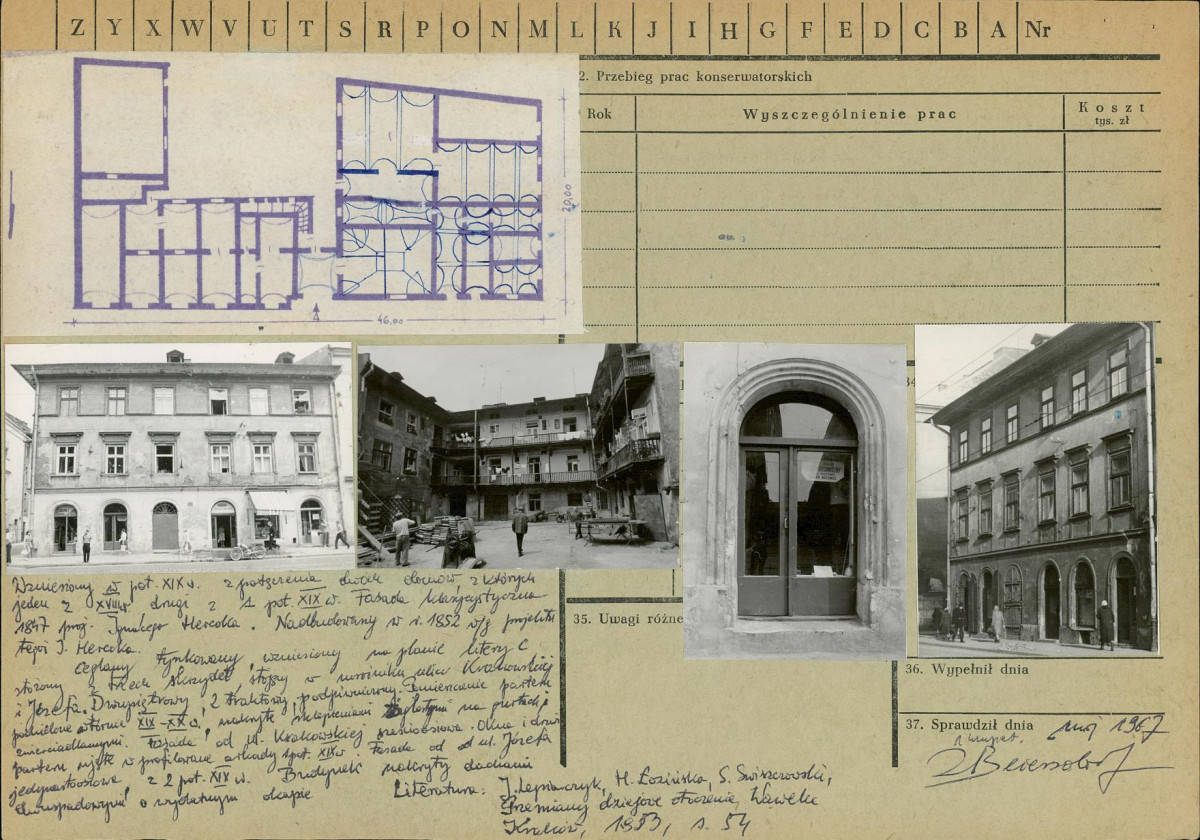 Z Y X W V U T S R P O N M L K J I H G F E D C B A Nr
2. Przebieg prac konserwatorskich
Rok
Wyszczególnienie prac
Koszt
tys. zł
20,00
46,00
Wzniesiony w poł. XIX w. z połączenia dwóch domów, z których
jeden z XVIII w. drugi z 1 poł. XIX w. Fasada klasycystyczna
1847 proj. Ignacego Hercoka. Nadbudowany w r. 1852 wg projektu
tegoż I. Hercoka.
Ceglany tynkowany, wzniesiony na planie litery C
złożony z trzech skrzydeł stojący w narożniku ulic Krakowskiej
i Józefa. Dwupiętrowy, 2 traktowy, podpiwniczony. Pomieszczenia parteru
XIX-XX w., nakryte sklepieniami
zwierciadlanymi. Fasada od ul. Krakowskiej sześcioosiowa. Okna i drzwi
parteru ujęte w profilowane arkady 1 poł. XIX w. Fasada od ul. Józefa
jedynastoosiowa z 2 poł. XIX w. Budynek nakryty dachami
dwuspadowymi o wydatnym okapie
Literatura: J. Lepiarczyk, H. Łozińska, S. Świszczowski,
Przemiany dziejowe otoczenia Wawelu
Kraków, 1953, s. 54
34
35. Uwagi różne
36. Wypełnił dnia
37. Sprawdził dnia
maj 1967